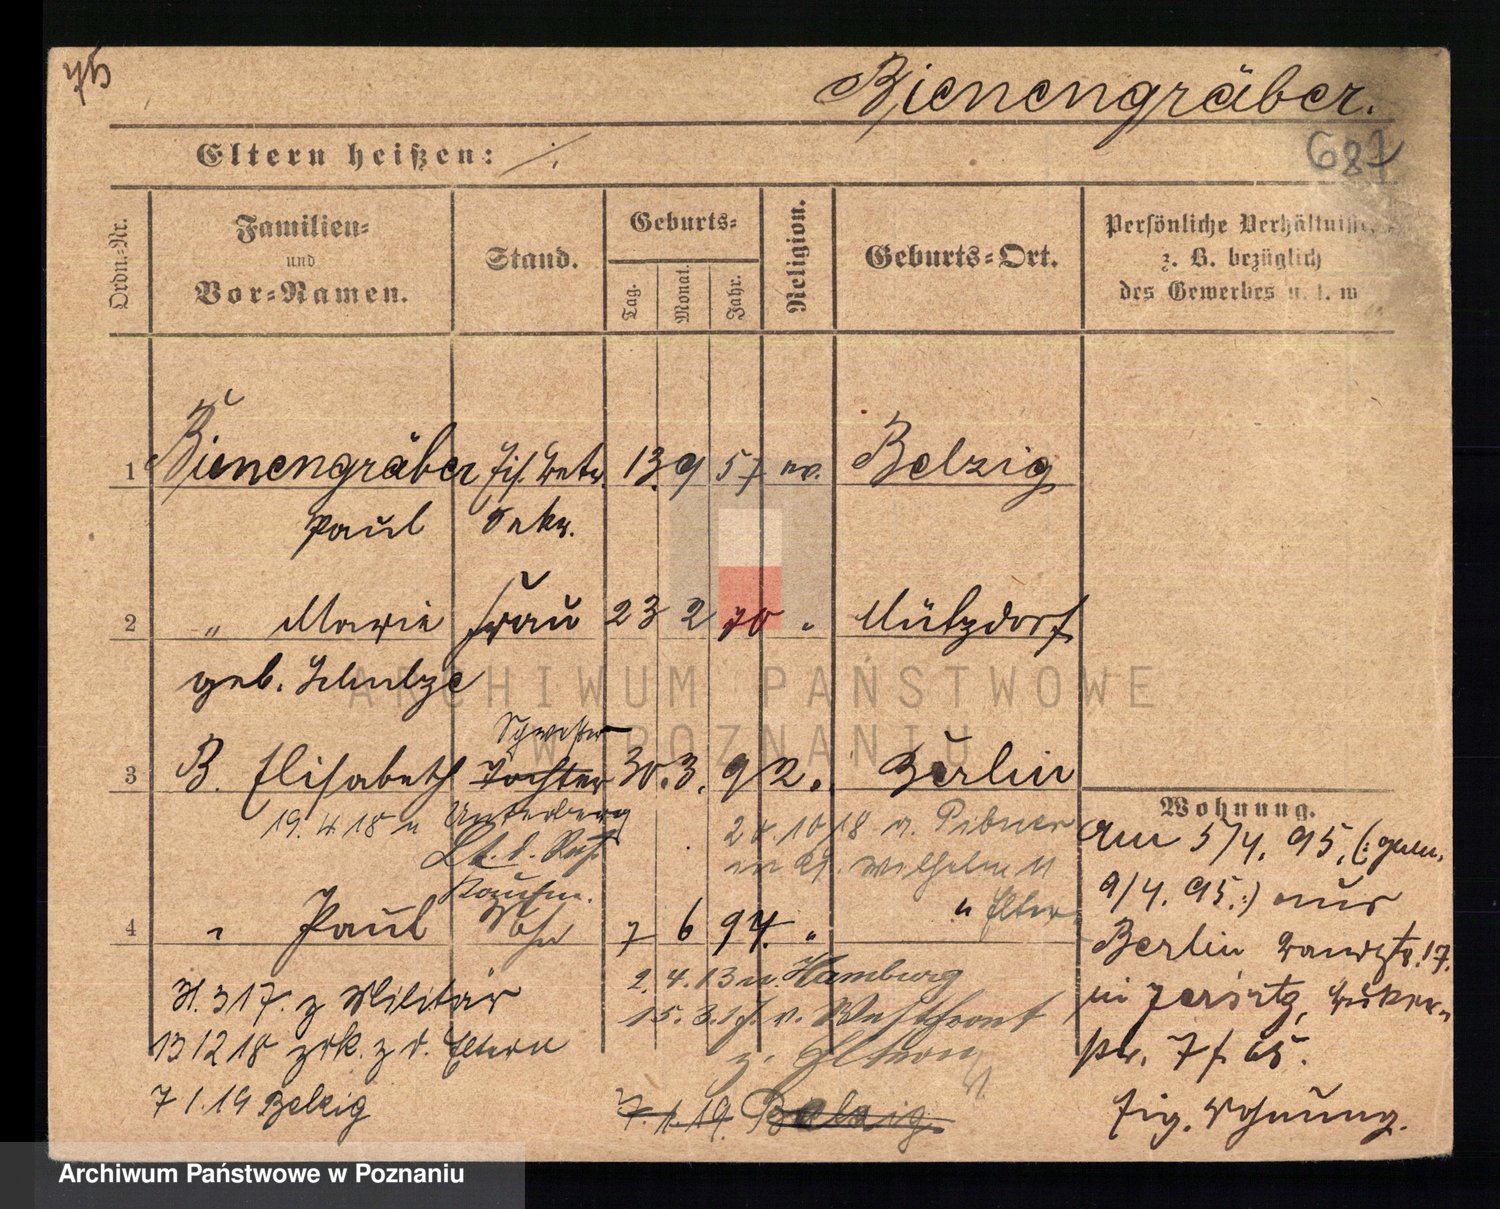 Bienengräber.
687
Eltern heißen:
Ordn.-Nr.
Familien-
und
Vor-Namen.
Stand.
Geburts-
Tag.
Monat.
Jahr.
Religion.
Geburts-Ort.
Persönliche Verhältnisse
z. B. bezüglich
des Gewerbes u. s. w
1 Bienengräber 13. 9 57 ev. Belzig
Paul Sekr.
2 " Marie Frau 23 2 70 " Mützdorf
geb. Schulze
Schwester
3 B. Elisabeth Tochter 30. 3. 92. " Berlin
19. 4. 18 n Unterberg
Lt. d. Res.
Kaufm.
28. 10 18 v.
Wilhelm
" Eltern
4 " Paul Sohn 7 6 94. "
2. 4. 13 n. Hamburg
15. 3. v. Westfront
z. Eltern
7. 1. 19. Belzig.
317. z Militär
13 12 18 zrk. z d. Eltern
7 1. 19 Belzig
Wohnung.
Am 5/4. 95. (: gem.
9/4. 95. :) aus
Berlin 17.
in Jersitz,
str. 7 f. 65.
Eig. Wohnung.
ARCHIWUM PAŃSTWOWE
W POZNANIU
Archiwum Państwowe w Poznaniu